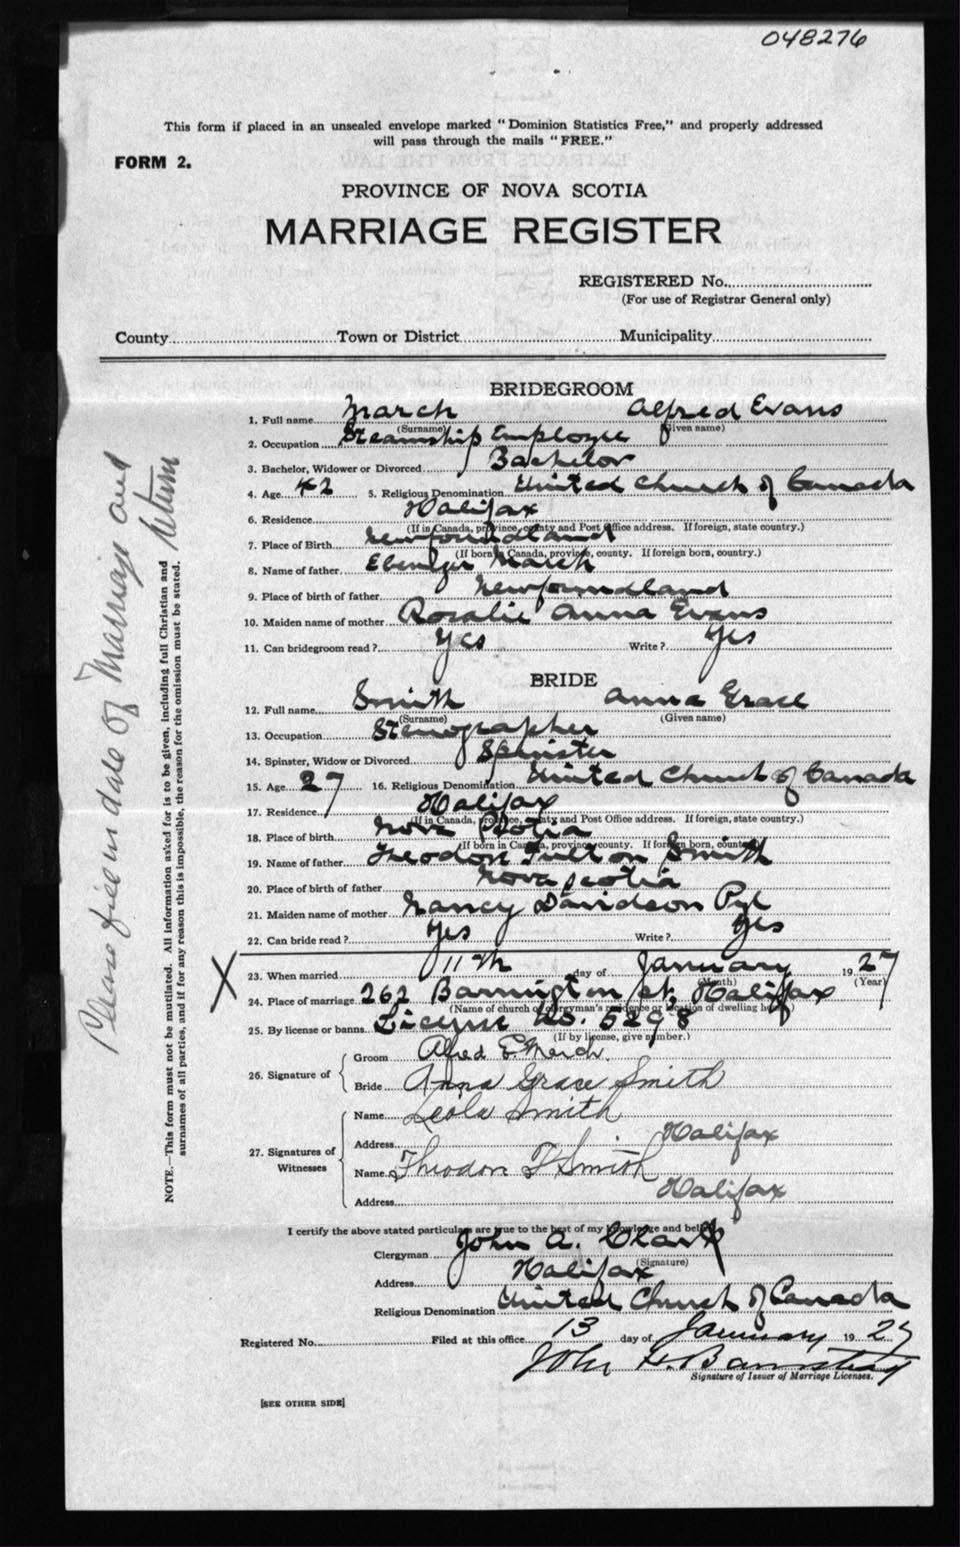 048276
This form if placed in an unsealed envelope marked "Dominion Statistics Free," and properly addressed
will pass through the mails "FREE."
FORM 2.
PROVINCE OF NOVA SCOTIA
MARRIAGE REGISTER
REGISTERED No.
(For use of Registrar General only)
County Town or District Municipality
BRIDEGROOM
1. Full name March Alfred Evans
(Surname) (Given name)
2. Occupation Steamship Employee
3. Bachelor, Widower or Divorced Bachelor
4. Age 42 5. Religious Denomination United Church of Canada
6. Residence Halifax
(If in Canada, province, county and Post Office address. If foreign, state country.)
7. Place of Birth Newfoundland
(If born in Canada, province, county. If foreign born, country.)
8. Name of father Ebenezer March
9. Place of birth of father Newfoundland
10. Maiden name of mother Rosalie Anna Evans
11. Can bridegroom read? Yes Write? Yes
BRIDE
12. Full name Smith Anna Grace
(Surname) (Given name)
13. Occupation Stenographer
14. Spinster, Widow or Divorced Spinster
15. Age 27 16. Religious Denomination United Church of Canada
17. Residence Halifax
(If in Canada, province, county and Post Office address. If foreign, state country.)
18. Place of birth Nova Scotia
(If born in Canada, province, county. If foreign born, country)
19. Name of father Theodon Fulton Smith
20. Place of birth of father Nova Scotia
21. Maiden name of mother Nancy Davidson Pyl
22. Can bride read? Yes Write? Yes
X
23. When married 11th day of January 1927
(Month) (Year)
24. Place of marriage 262 Barrington St, Halifax
(Name of church or clergyman's residence or location of dwelling house)
25. By license or banns License No. 5298
(If by license, give number.)
26. Signature of Groom Alfred E March.
Bride Anna Grace Smith
27. Signatures of Witnesses Name Leola Smith
Address Halifax
Name Theodon F Smith
Address Halifax
I certify the above stated particulars are true to the best of my knowledge and belief
Clergyman John A. Clark
(Signature)
Address Halifax
Religious Denomination United Church of Canada
Registered No. Filed at this office 13 day of January 1927
John H. Barnstead
Signature of Issuer of Marriage Licenses.
[SEE OTHER SIDE]
NOTE.—This form must not be mutilated. All information asked for is to be given, including full Christian and
surnames of all parties, and if for any reason this is impossible, the reason for the omission must be stated.
Please fill in date of Marriage and
return